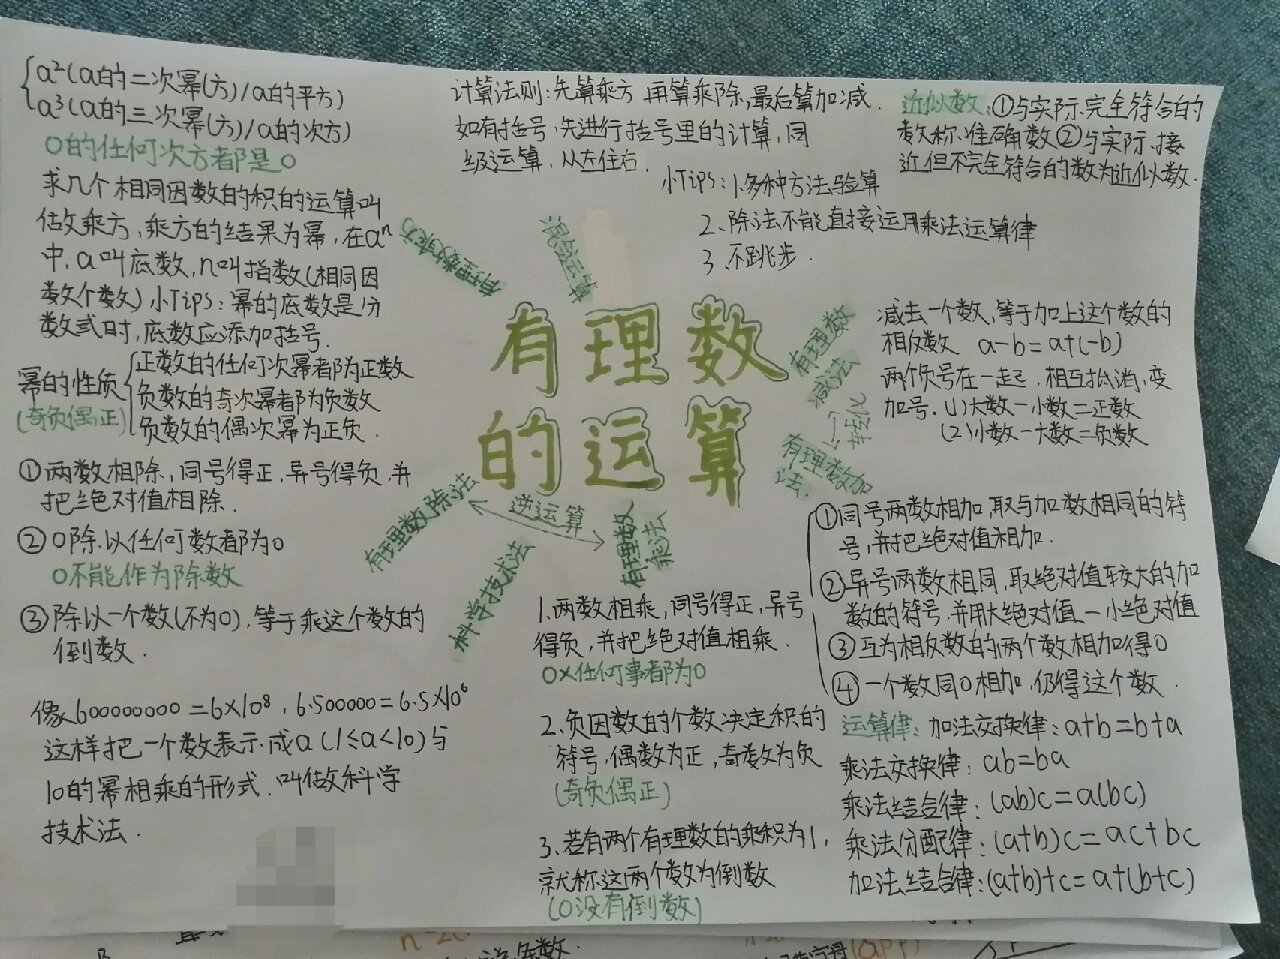 a²(a的二次幂(方)/a的平方)
a³(a的三次幂(方)/a的次方)
0的任何次方都是0
求几个相同因数的积的运算叫
做乘方,乘方的结果为幂,在aⁿ
中,a叫底数,n叫指数(相同因
数个数)小Tips:幂的底数是分
数或时,底数应添加括号.
幂的性质
(奇负偶正)
正数的任何次幂都为正数
负数的奇次幂都为负数
负数的偶次幂为正负.
①两数相除,同号得正,异号得负,并
把绝对值相除.
②0除以任何数都为0
0不能作为除数
③除以一个数(不为0),等于乘这个数的
倒数.
像600000000=6×10⁸,6.500000=6.5×10⁶
这样把一个数表示成a(1≤a<10)与
10的幂相乘的形式.叫做科学
技术法.
计算法则:先算乘方,再算乘除,最后算加减.
如有括号,先进行括号里的计算,同
级运算,从左往右.
小Tips:1.多种方法验算
2.除法不能直接运用乘法运算律
3.不跳步.
近似数:①与实际完全符合的
数称准确数②与实际接
近但不完全符合的数为近似数.
有理数乘方
混合运算
有理数
的运算
有理数
减法
转化
有理数加
法.
有理数除法
逆运算
有理数
乘法
科学技术法
减去一个数,等于加上这个数的
相反数 a-b=a+(-b)
两个负号在一起,相互抵消,变
加号.(1)大数-小数=正数
(2)小数-大数=负数
①同号两数相加,取与加数相同的符
号,并把绝对值相加.
②异号两数相同,取绝对值较大的加
数的符号,并用大绝对值-小绝对值
③互为相反数的两个数相加得0
④一个数同0相加,仍得这个数.
运算律:加法交换律:a+b=b+a
乘法交换律:ab=ba
乘法结合律:(ab)c=a(bc)
乘法分配律:(a+b)c=ac+bc
加法结合律:(a+b)+c=a+(b+c)
1.两数相乘,同号得正,异号
得负,并把绝对值相乘.
0×任何事都为0
2.负因数的个数决定积的
符号,偶数为正,奇数为负
(奇负偶正)
3.若有两个有理数的乘积为1,
就称这两个数为倒数
(0没有倒数)